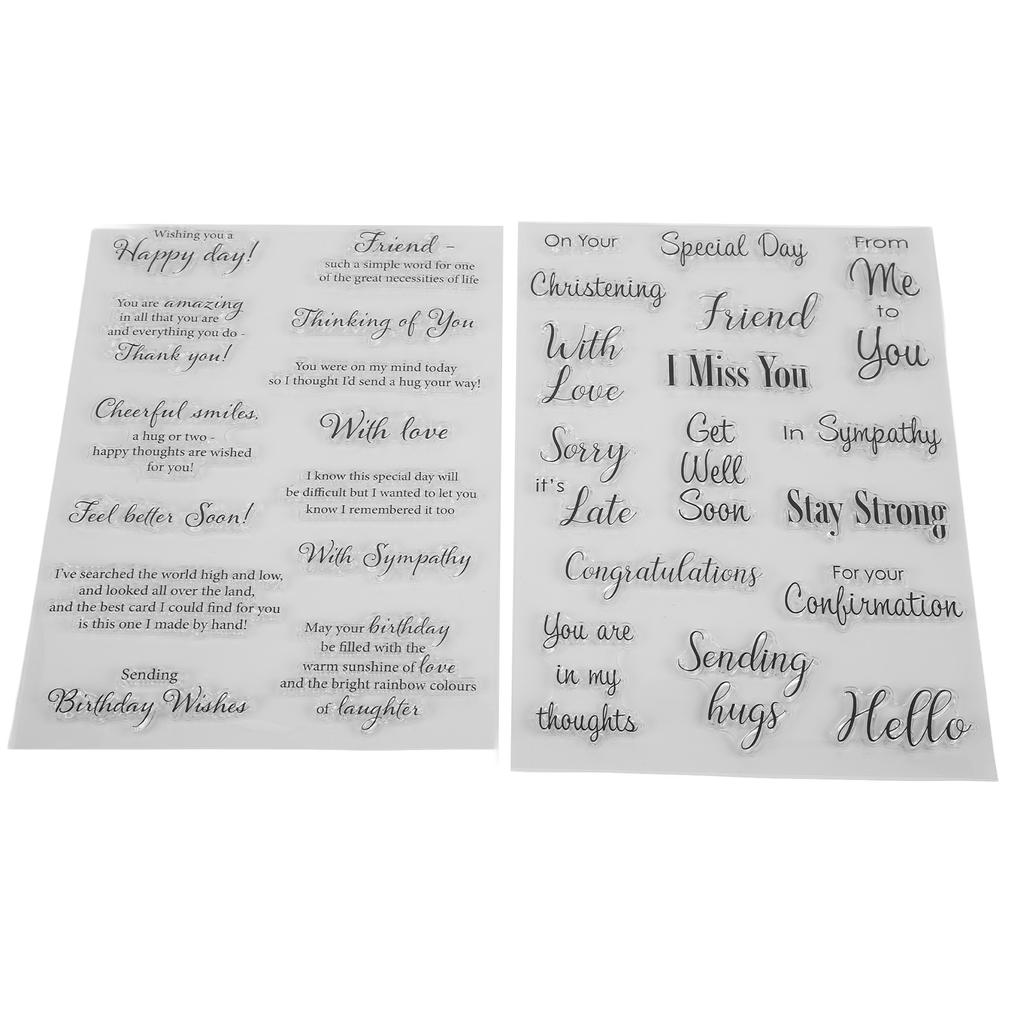 Wishing you a
Happy day!
You are amazing
in all that you are
and everything you do -
Thank you!
Cheerful smiles,
a hug or two -
happy thoughts are wished
for you!
Feel better Soon!
I've searched the world high and low,
and looked all over the land,
and the best card I could find for you
is this one I made by hand!
Sending
Birthday Wishes
Friend -
such a simple word for one
of the great necessities of life
Thinking of You
You were on my mind today
so I thought I'd send a hug your way!
With love
I know this special day will
be difficult but I wanted to let you
know I remembered it too
With Sympathy
May your birthday
be filled with the
warm sunshine of love
and the bright rainbow colours
of laughter
On Your
Christening
With
Love
Sorry
it's
Late
Special Day
Friend
I Miss You
Get
Well
Soon
From
Me
to
You
In Sympathy
Stay Strong
Congratulations
For your
Confirmation
You are
in my
thoughts
Sending
hugs
Hello